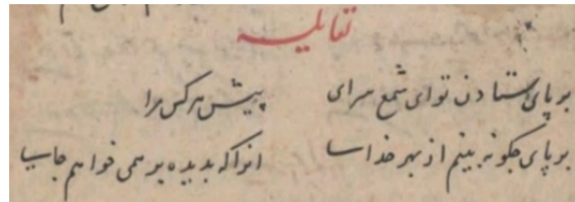 بر پای ستادن تو ای شمع سرای پیش هر کس را
بر پای چگونه بینم از بهر خدا انرا که بدیده بر همی خواهم جا